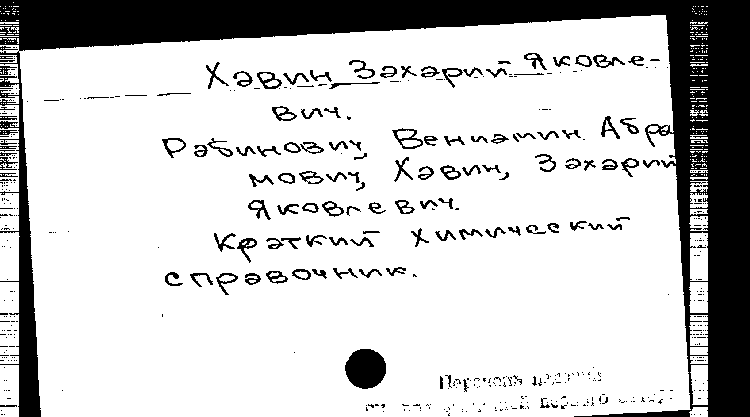 Хавин, Захарий Яковле-
вич.
Рабинович, Вениамин Абра
мович, Хавин, Захарий
Яковлевич.
Краткий химический
справочник.
Перечень изданий
первого